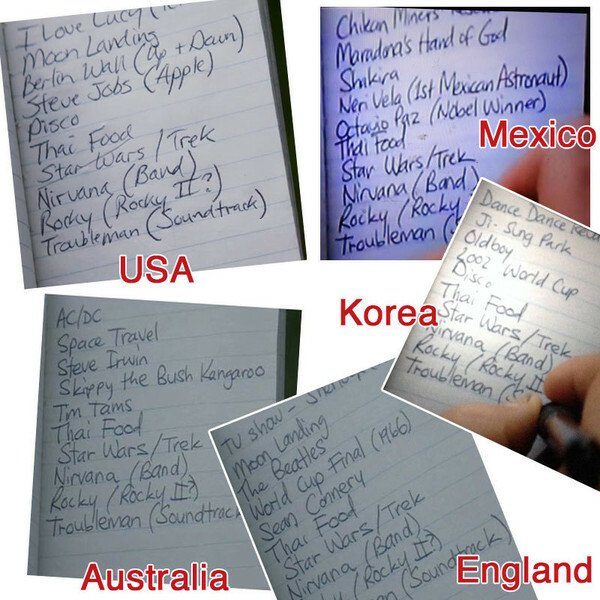 I Love Lucy
Moon Landing
Berlin Wall (Up + Down)
Steve Jobs (Apple)
Disco
Thai Food
Star Wars / Trek
Nirvana (Band)
Rocky (Rocky II?)
Troubleman (Soundtrack)
USA
Chikan Miners
Maradona's Hand of God
Shakira
Neri Vela (1st Mexican Astronaut)
Octavio Paz (Nobel Winner)
Thai Food
Star Wars/Trek
Nirvana (Band)
Rocky (Rocky
Troubleman (
Mexico
Dance Dance
Ji-Sung Park
Oldboy
2002 World Cup
Disco
Thai Food
Star Wars/Trek
Nirvana (Band)
Rocky (Rocky II
Troubleman (
Korea
AC/DC
Space Travel
Steve Irwin
Skippy the Bush Kangaroo
Tim Tams
Thai Food
Star Wars/Trek
Nirvana (Band)
Rocky (Rocky II?)
Troubleman (Soundtrack
Australia
TV show -
Moon Landing
The Beatles
World Cup Final (1966)
Sean Connery
Thai Food
Star Wars/Trek
Nirvana (Band)
(Rocky II?)
(Soundtrack)
England